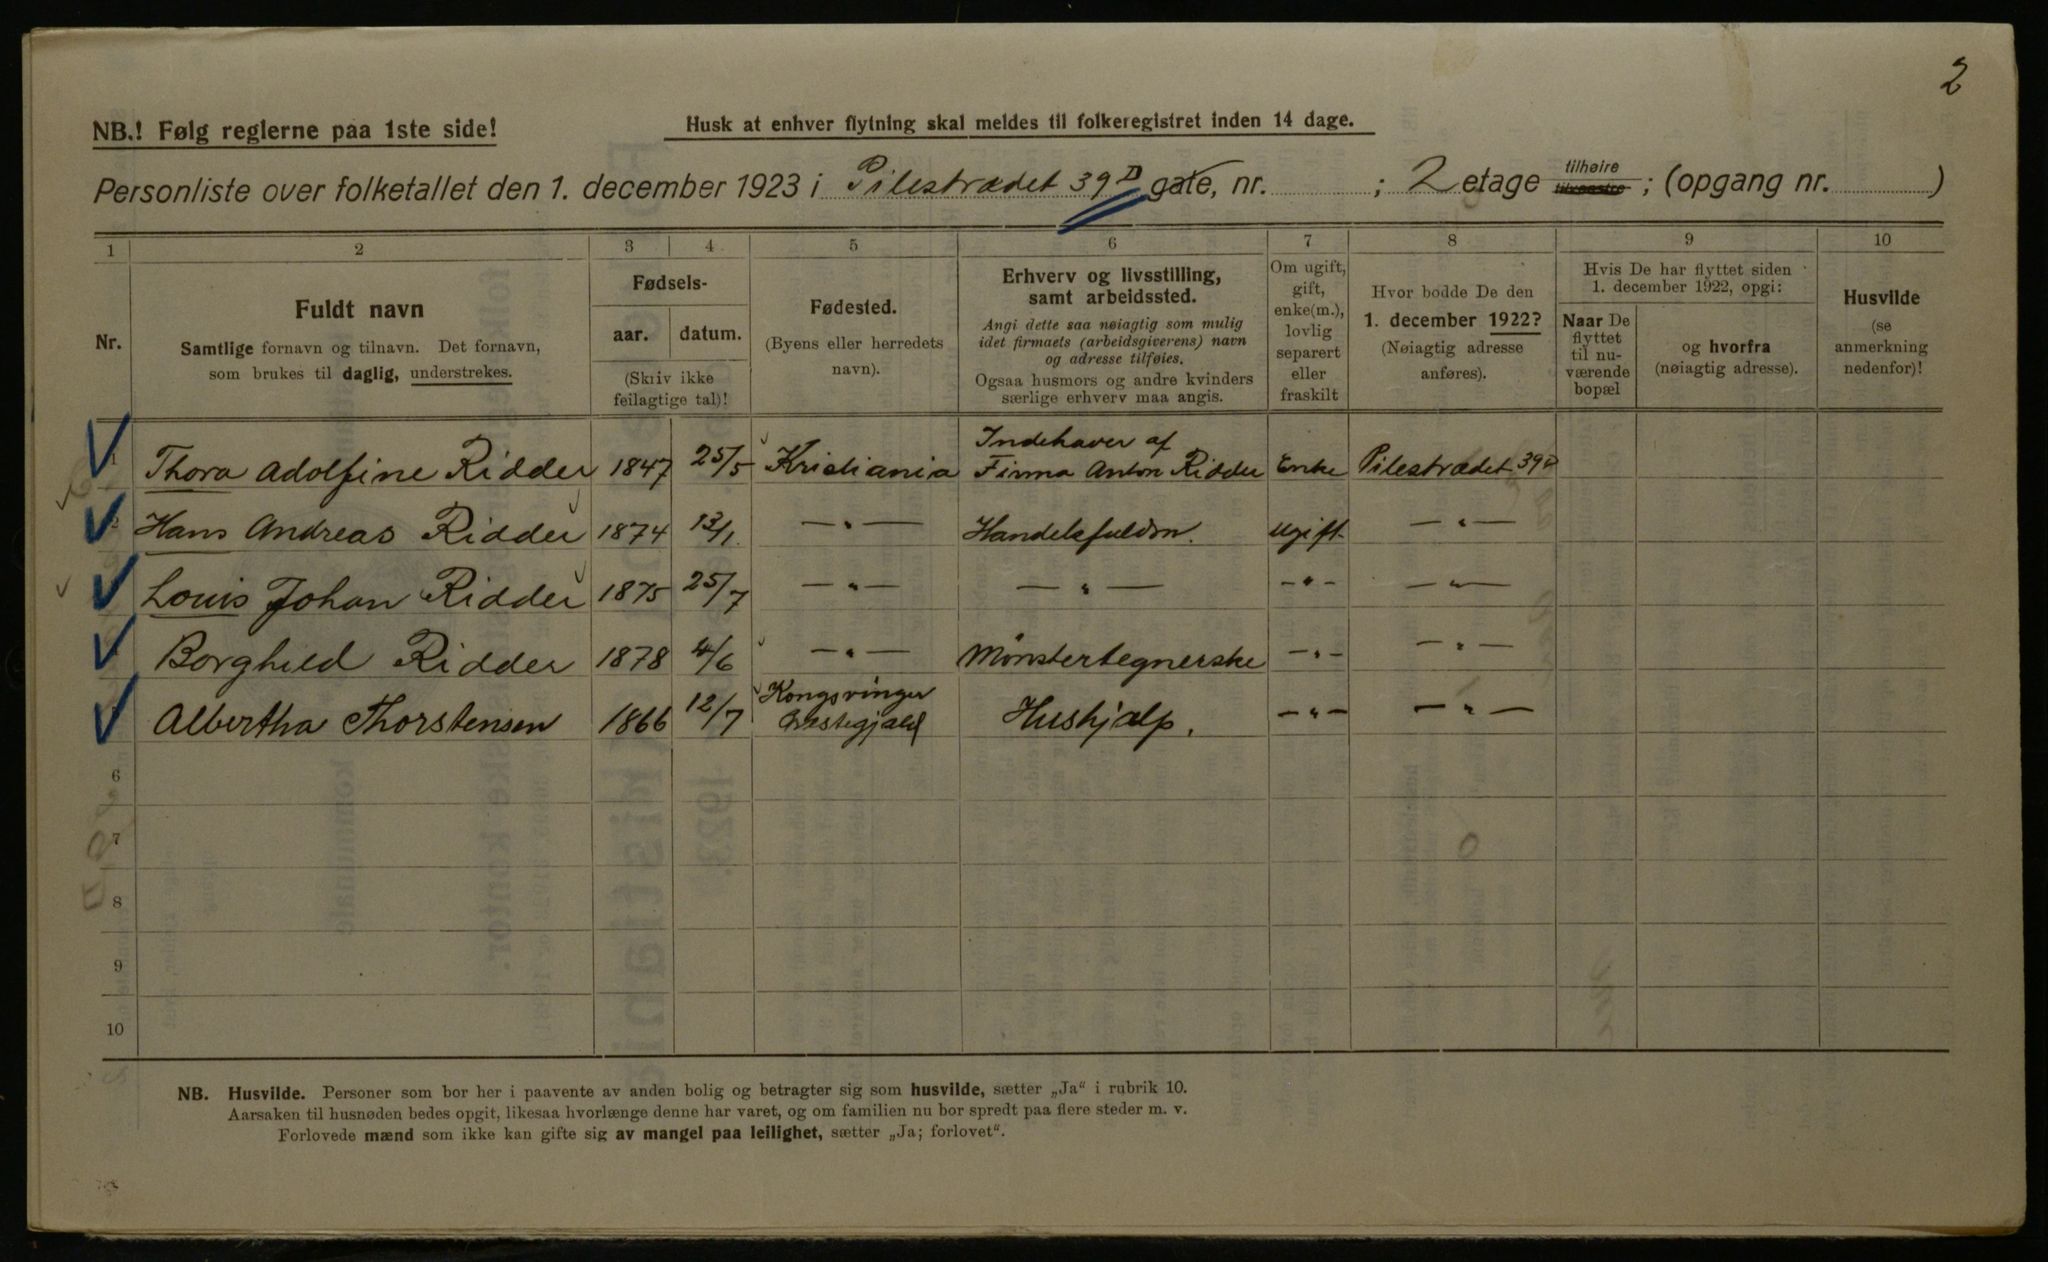 2
NB.! Følg reglerne paa 1ste side!
Husk at enhver flytning skal meldes til folkeregistret inden 14 dage.
Personliste over folketallet den 1. december 1923 i Pilestrædet 39D gate, nr. ; 2 etage tilhøire tilvenstre ; (opgang nr. )
1 2 3 4 5 6 7 8 9 10
Nr.
Fuldt navn
Samtlige fornavn og tilnavn. Det fornavn,
som brukes til daglig, understrekes.
Fødsels-
aar. datum.
(Skriv ikke
feilagtige tal)!
Fødested.
(Byens eller herredets
navn).
Erhverv og livsstilling,
samt arbeidssted.
Angi dette saa nøiagtig som mulig
idet firmaets (arbeidsgiverens) navn
og adresse tilføies.
Ogsaa husmors og andre kvinders
særlige erhverv maa angis.
Om ugift,
gift,
enke(m.),
lovlig
separert
eller
fraskilt
Hvor bodde De den
1. december 1922?
(Nøiagtig adresse
anføres).
Hvis De har flyttet siden
1. december 1922, opgi:
Naar De
flyttet
til nu-
værende
bopæl
og hvorfra
(nøiagtig adresse).
Husvilde
(se
anmerkning
nedenfor)!
Indehaver af
1 Thora Adolfine Ridder 1847 25/5 Kristiania Firma Anton Ridder Enke Pilestrædet 39D
2 Hans Andreas Ridder 1874 13/1 — " — Handelsfuldm. Ugift — " —
Louis Johan Ridder 1875 25/7 — " — — " — — " — — " —
Borghild Ridder 1878 4/6 — " — Mønstertegnerske — " — — " —
Kongsvinger
Albertha Thorstensen 1866 12/7 Hushjælp. — " — — " —
6
7
8
9
10
NB. Husvilde. Personer som bor her i paavente av anden bolig og betragter sig som husvilde, sætter „Ja“ i rubrik 10.
Aarsaken til husnøden bedes opgit, likesaa hvorlænge denne har varet, og om familien nu bor spredt paa flere steder m. v.
Forlovede mænd som ikke kan gifte sig av mangel paa leilighet, sætter „Ja; forlovet“.